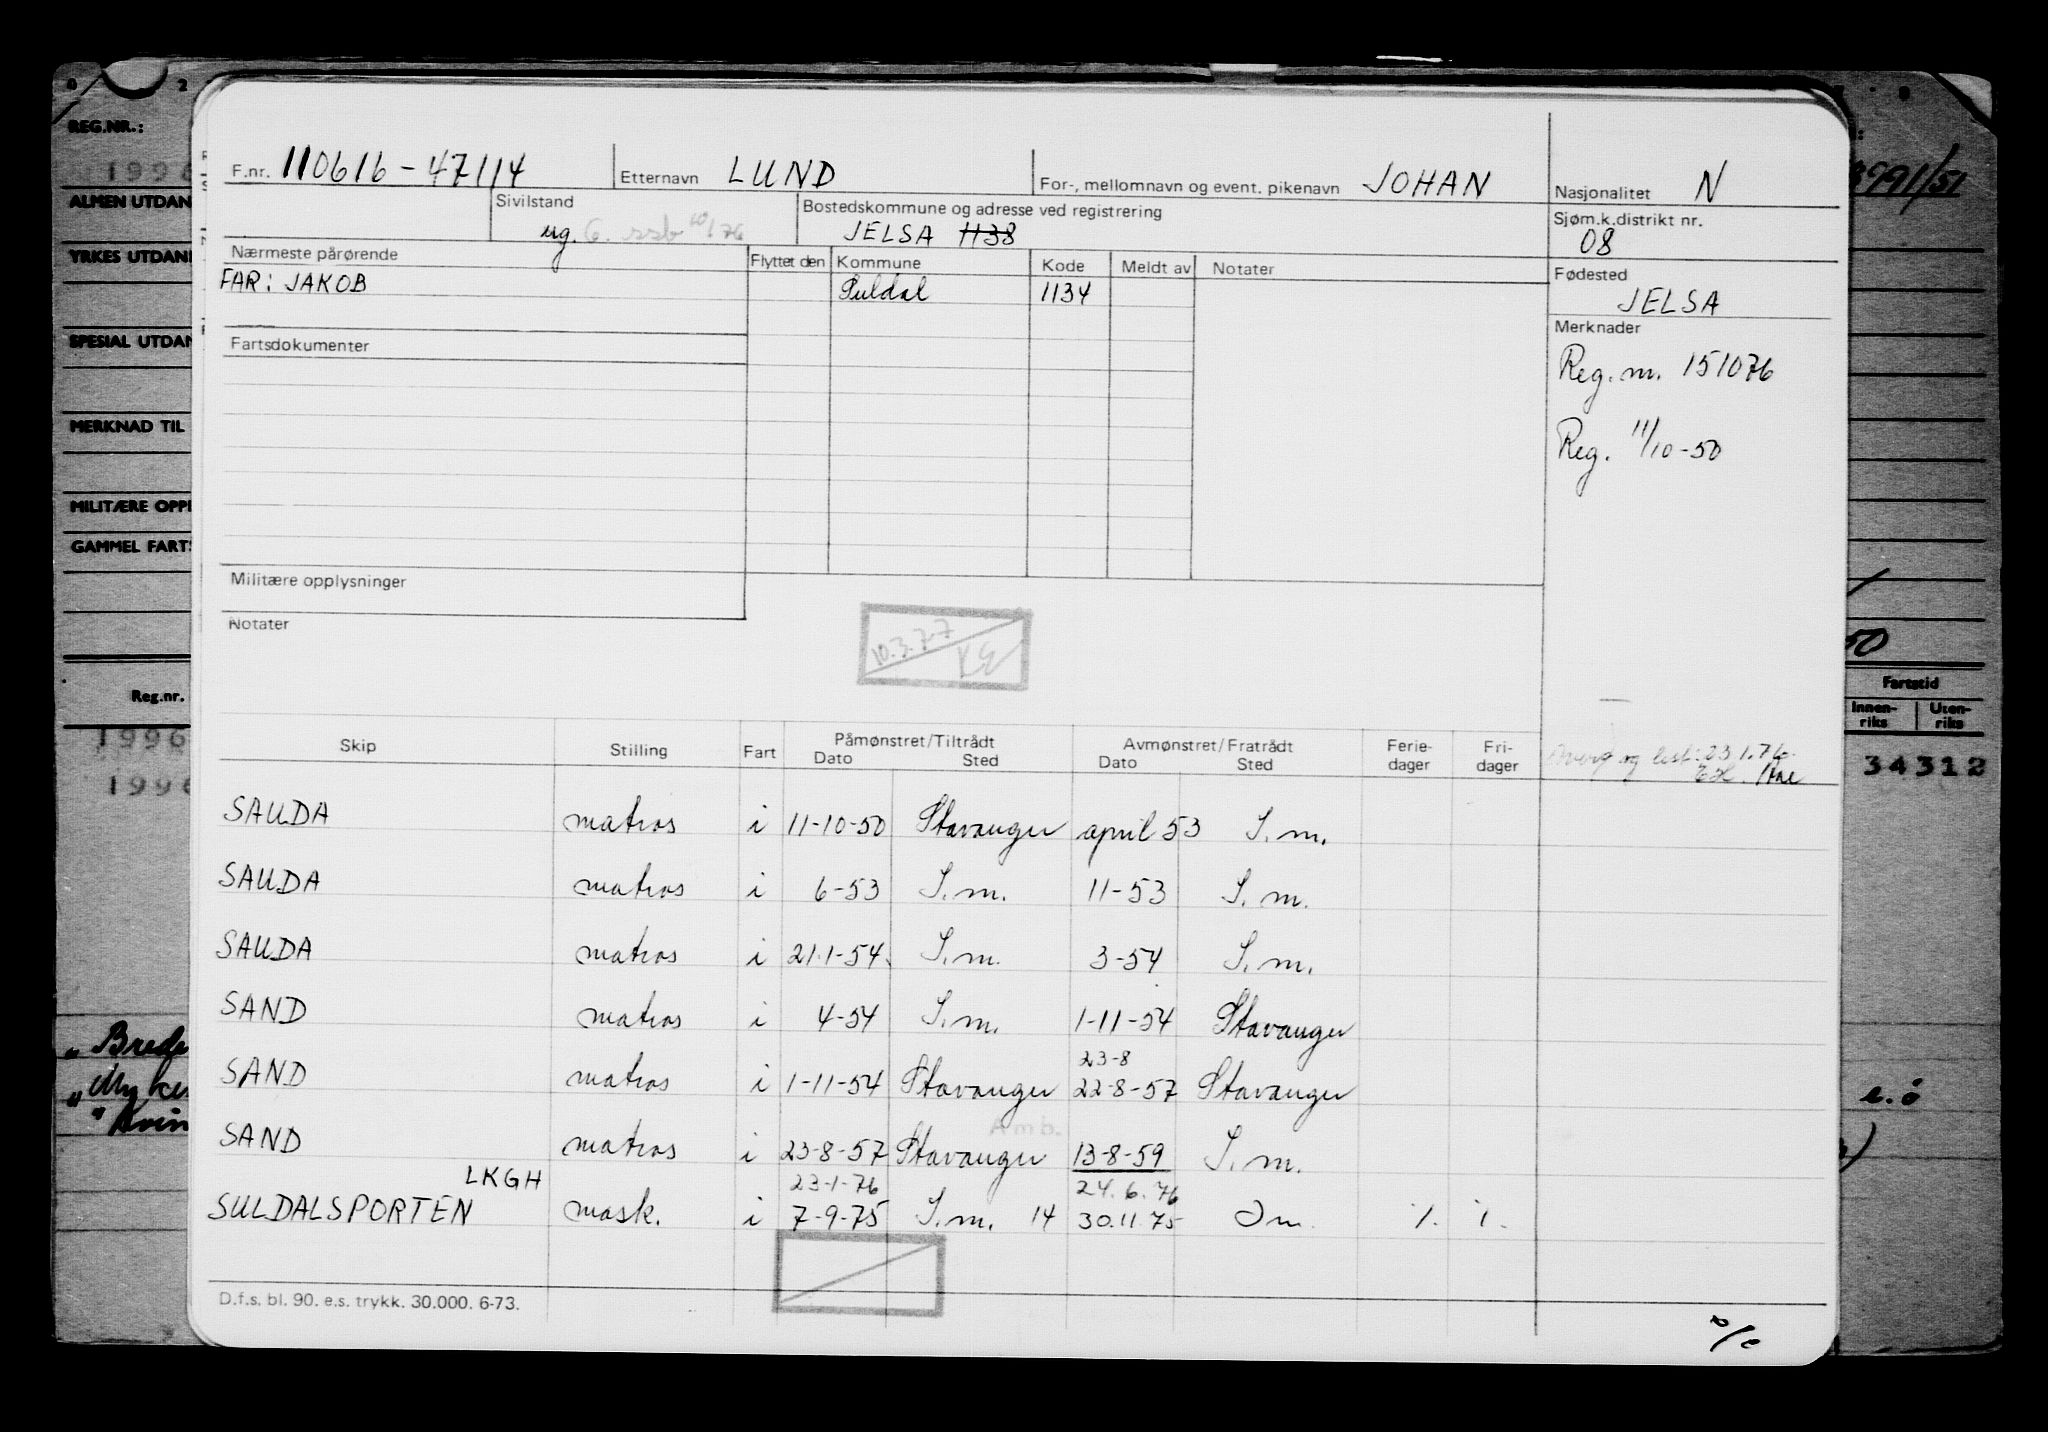 F.nr. 110616-47114 Etternavn LUND For-, mellomnavn og event. pikenavn JOHAN Nasjonalitet N
Sivilstand ug. Bostedskommune og adresse ved registrering JELSA 1138 Sjøm.k.distrikt nr. 08
Nærmeste pårørende Flyttet den Kommune Kode Meldt av Notater Fødested
FAR: JAKOB Suldal 1134 JELSA
Fartsdokumenter Merknader
Reg. m. 151076
Reg. 11/10-50
Militære opplysninger
Notater
10.3.77
Skip Stilling Fart Påmønstret/Tiltrådt Avmønstret/Fratrådt Ferie- Fri-
Dato Sted Dato Sted dager dager
SAUDA matros i 11-10-50 Stavanger april 53 S.m.
SAUDA matros i 6-53 S.m. 11-53 S.m.
SAUDA matros i 21.1-54 S.m. 3-54 S.m.
SAND matros i 4-54 S.m. 1-11-54 Stavanger
23-8
SAND matros i 1-11-54 Stavanger 22-8-57 Stavanger
Amb.
SAND matros i 23-8-57 Stavanger 13-8-59 S.m.
LKGH 23-1-76 24.6.76
SULDALSPORTEN mask. i 7-9-75 S.m. 14 30.11.75
D.f.s. bl. 90. e.s. trykk. 30.000. 6-73.
REG.NR.:
ALMEN UTDAN
YRKES UTDAN
SPESIAL UTDAN
MERKNAD TIL
MILITÆRE OPPL
GAMMEL FARTS
Reg.nr.
1996
Fartstid
Innen- Uten-
riks riks
34312